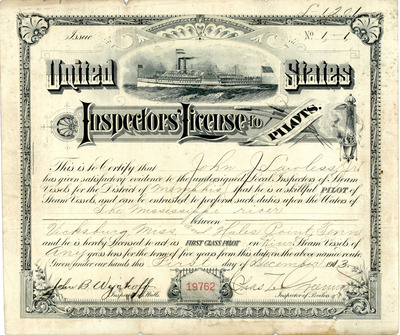 Issue No 1-1
United States
Inspectors' License to
PILOTS.
This is to Certify that John J
has given satisfactory evidence to the undersigned Local Inspectors of Steam
Vessels for the District of Memphis that he is a skillful PILOT of
Steam Vessels, and can be entrusted to perform such duties upon the Waters of
The Mississippi river
between
Vicksburg Miss. Hales Point, Tenn
and he is hereby licensed to act as FIRST CLASS PILOT on River Steam Vessels of
Any gross tons for the term of five years from this date, on the above named route.
Given under our hands this First day of December, 1903
John B. Wyckoff
Inspector of Hulls.
19762
Chas
Inspector of Boilers